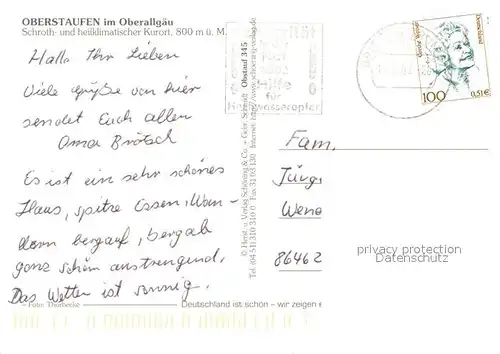 OBERSTAUFEN im Oberallgäu
Schroth- und heilklimatischer Kurort, 800 m ü. M.
Hallo Ihr Lieben
Viele Grüße von hier
sendet Euch allen
Oma Brötsch
Es ist ein sehr schönes
Haus, spitze Essen, Wan-
dern bergauf, bergab
ganz schön anstrengend.
Das Wetter ist sonnig.
Foto: Thorbecke
Deutschland ist schön – wir zeigen e
© Herst. u. Verlag Schöning & Co. + Gebr. Schmidt
Obstand 345
für
Hochwasseropfer
Deutschland
100
0,51€
Fam.
Jürg
Wene
86462
privacy protection
Datenschutz